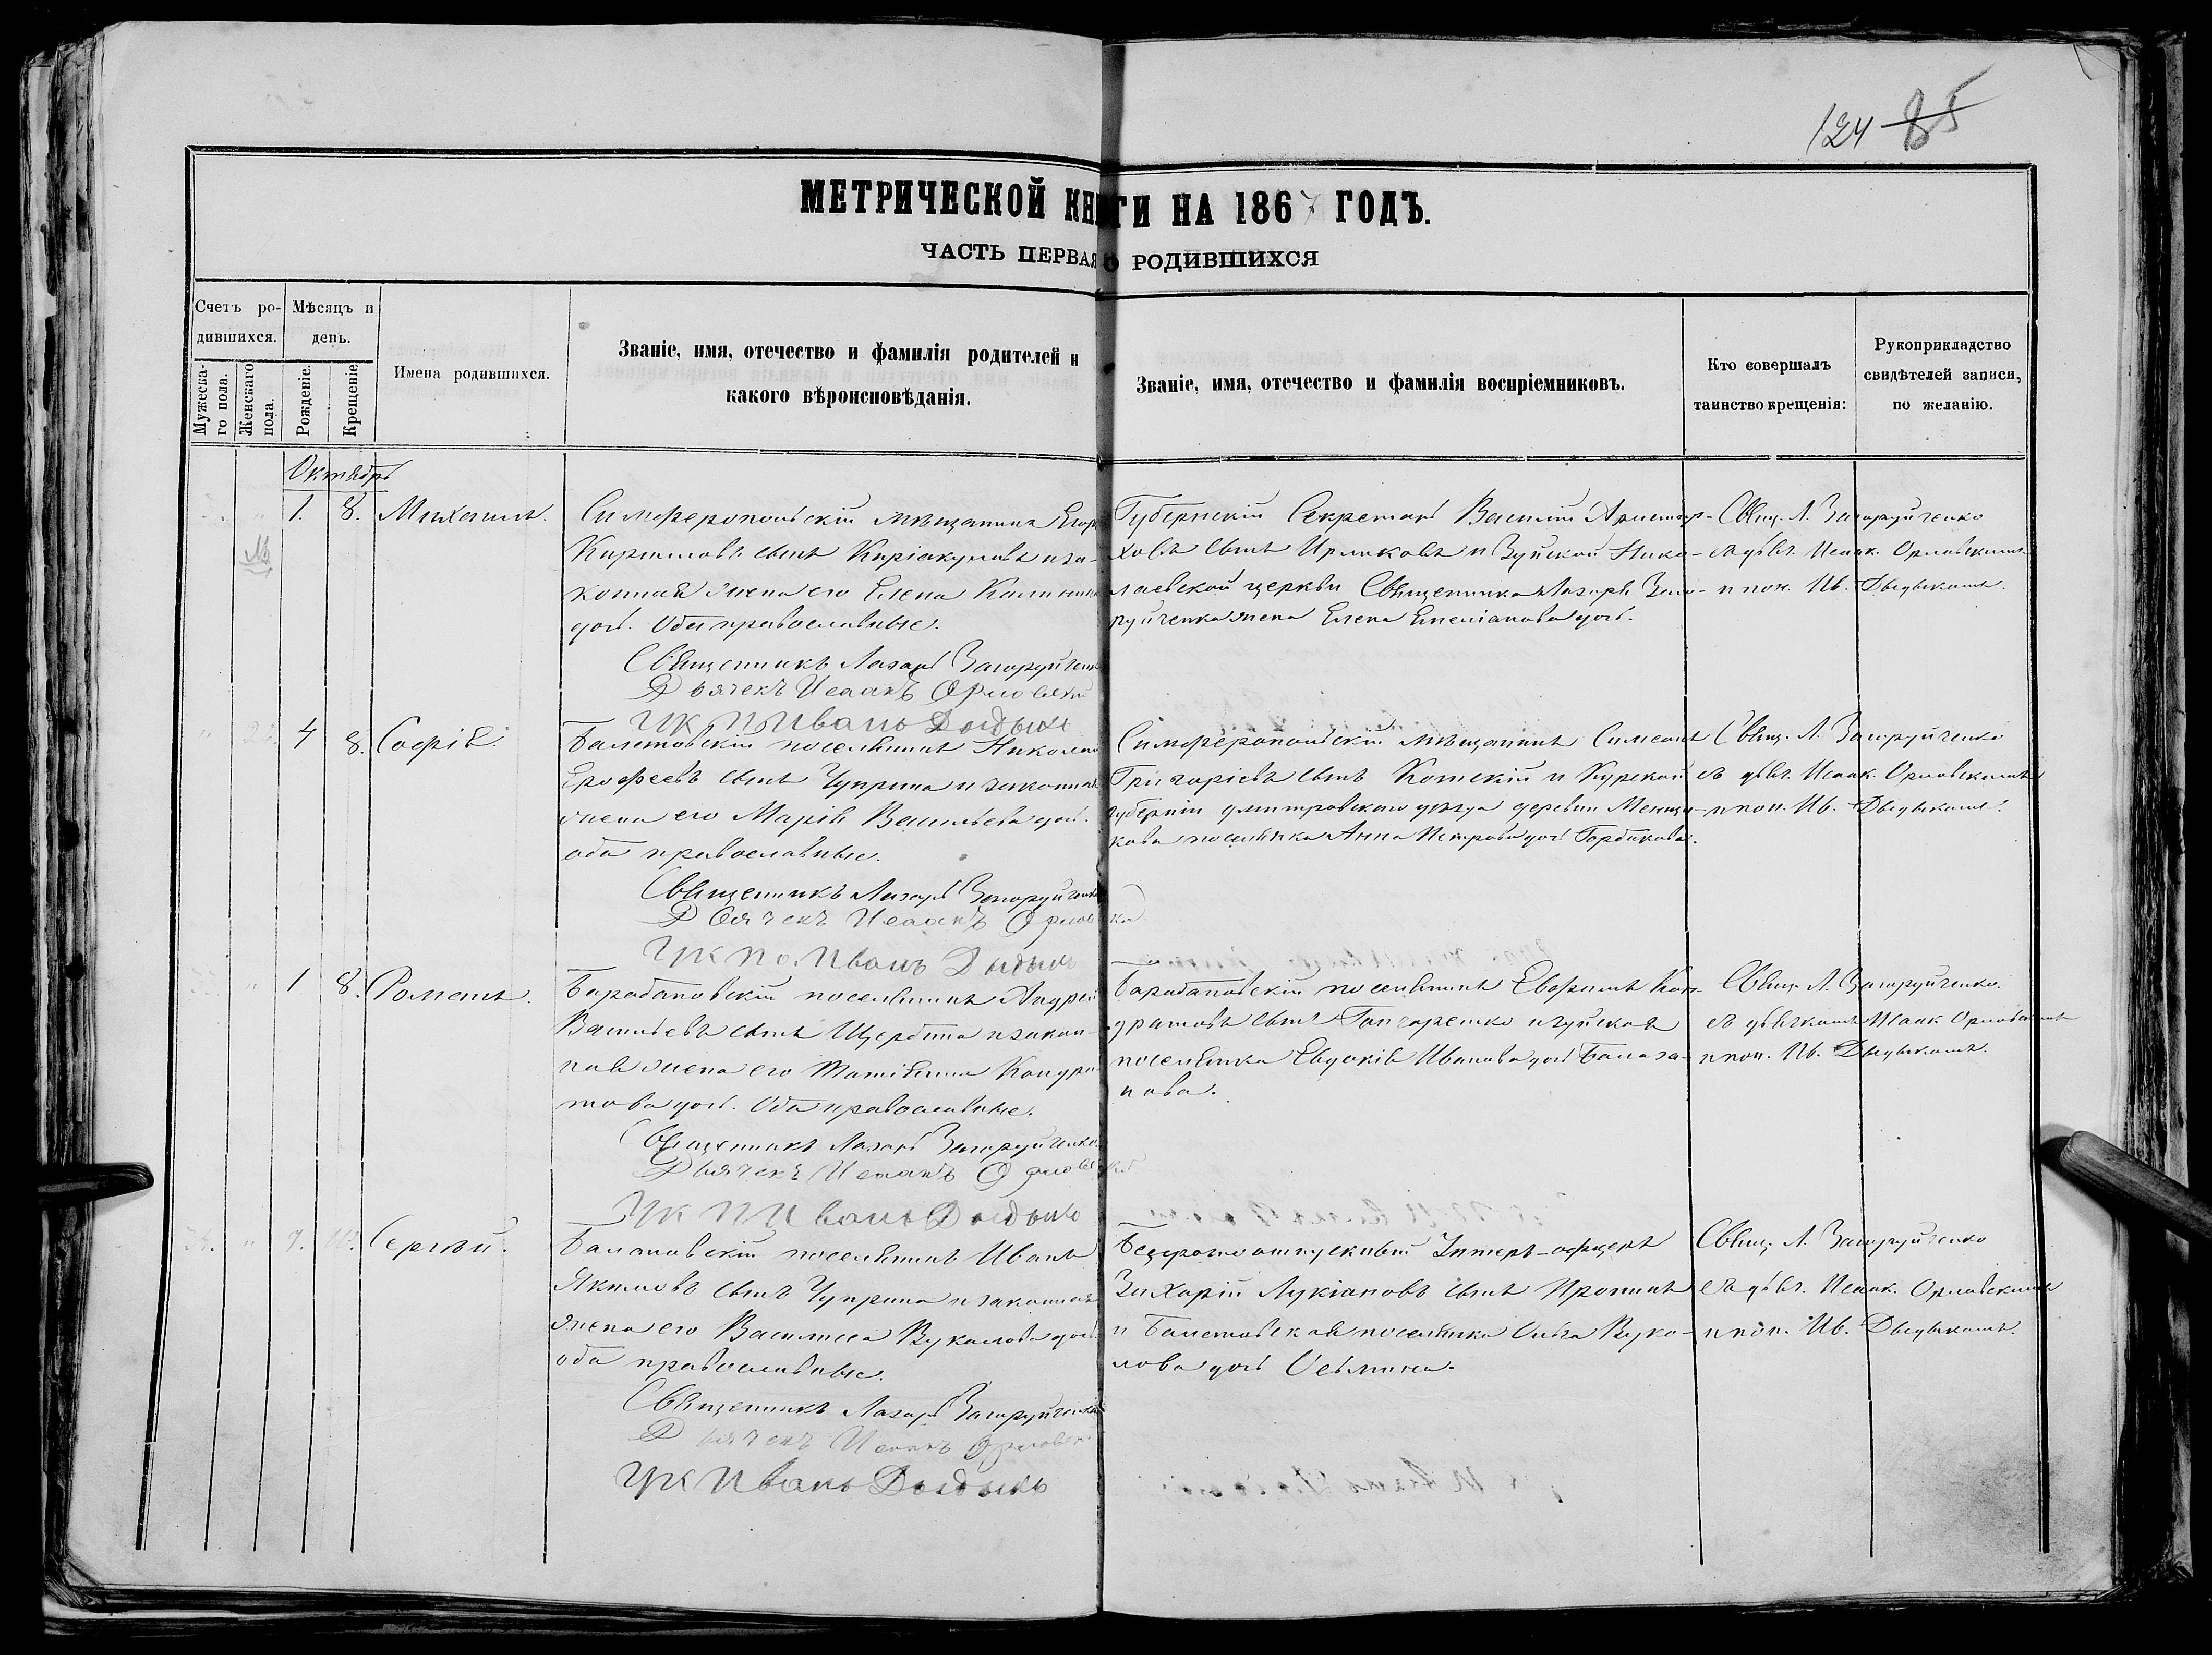 124 85
МЕТРИЧЕСКОЙ КНИГИ НА 1867 ГОДЪ.
ЧАСТЬ ПЕРВАЯ О РОДИВШИХСЯ
Счетъ ро-
дившихся.
Мужеска-
го пола.
Женскаго
пола.
Мѣсяцъ и
день.
Рожденіе.
Крещеніе.
Имена родившихся.
Званіе, имя, отечество и фамилія родителей и
какого вѣроисповѣданія.
Званіе, имя, отечество и фамилія воспріемниковъ.
Кто совершалъ
таинство крещенія:
Рукоприкладство
свидѣтелей записи,
по желанію.
Октябрь
1. 8. Михаилъ.
Симферопольскій мѣщанинъ Егоръ
Кирилловъ сынъ Киріакуловъ и за-
конная жена его Елена Калинина
дочь. Оба православные.
Священникъ Лазарь Загоруйченко
Дьячекъ Исаакъ Орловскій
Иванъ Дыдыкъ
Губернскій Секретарь Василій Аристар-
ховъ сынъ Ирликовъ и Зуйской Нико-
лаевской церкви Священника Лазаря Заго-
руйченка жена Елена Емеліанова дочь.
Свящ. Л. Загоруйченко
съ дьяч. Исаак. Орловскимъ
и пон. Ив. Дыдыкомъ.
4 8. Софія.
поселянинъ Николай
Ерофеевъ сынъ Чуприна и законная
жена его Марія Васильева дочь.
оба православные.
Священникъ Лазарь Загоруйченко
Дьячекъ Исаакъ Орловскій
Иванъ Дыдыкъ
Симферопольскій мѣщанинъ Симеонъ
Григоріевъ сынъ Котскій и Курской
губерніи дмитровскаго уѣзда деревни Менщи-
кова поселянка Анна Петрова дочь Горбикова.
Свящ. Л. Загоруйченко
съ дьяч. Исаак. Орловскимъ
и пон. Ив. Дыдыкомъ.
" 1 8. Романъ.
поселянинъ Андрей
Васильевъ сынъ Щербина и закон-
ная жена его Татіянна Кондра-
това дочь. Оба православные.
Священникъ Лазарь Загоруйченко
Дьячекъ Исаакъ Орловскій
Иванъ Дыдыкъ
поселянинъ Ефримъ Кон-
дратовъ сынъ Гончаренко и зуйская
поселянка Евдокія Иванова дочь Балаза-
нова.
Свящ. Л. Загоруйченко.
съ дьячкомъ Исаак. Орловскимъ
и пон. Ив. Дыдыкомъ.
" 9. Сергѣй.
поселянинъ Иванъ
Якимовъ сынъ Чуприна и законная
жена его Василисса Вуколова дочь
оба православные.
Священникъ Лазарь Загоруйченко
Дьячекъ Исаакъ Орловскій
Иванъ Дыдыкъ
Безсрочноотпускный Унтеръ-офицеръ
Захарій Лукіановъ сынъ Пронинъ
и поселянка Ольга Вуко-
лова дочь Осьмина.
Свящ. Л. Загоруйченко
съ дьяч. Исаак. Орловскимъ
и пон. Ив. Дыдыкомъ.